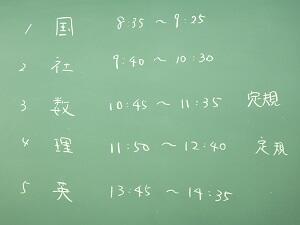 1 国 8:35 ～ 9:25
2 社 9:40 ～ 10:30
3 数 10:45 ～ 11:35 定規
4 理 11:50 ～ 12:40 定規
5 英 13:45 ～ 14:35